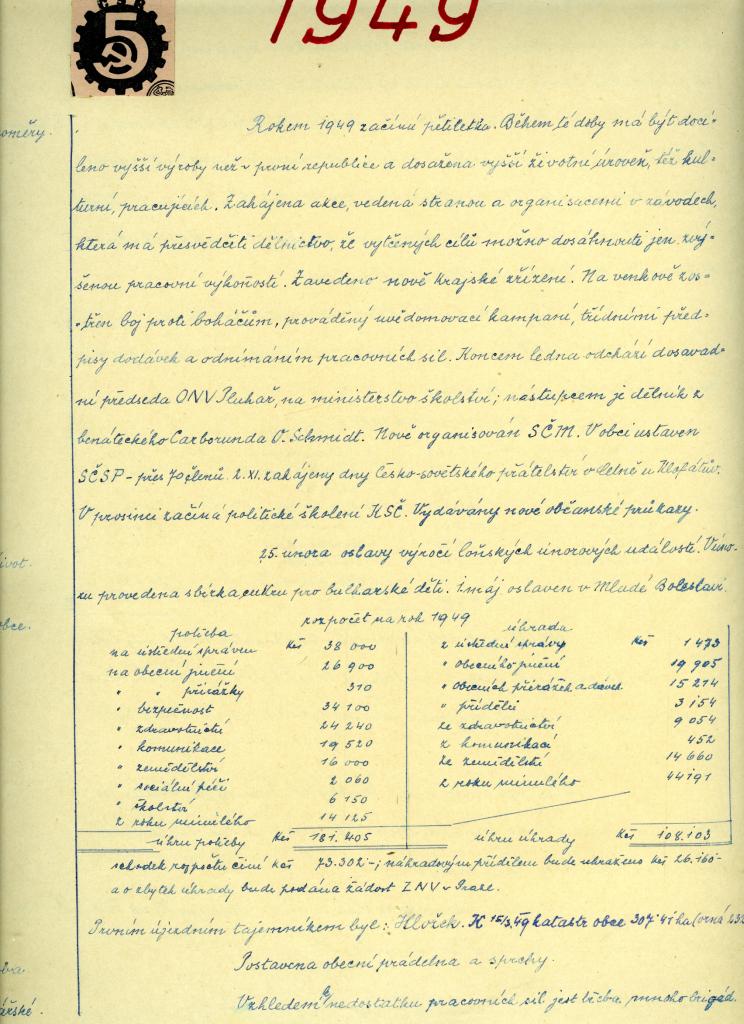 ČSR
5
1949
oměry.
Rokem 1949 začíná pětiletka. Během té doby má být docí-
leno vyšší výroby než v první republice a dosažena vyšší životní úroveň, též kul-
turní, pracujících. Zahájena akce, vedená stranou a organisacemi v závodech,
která má přesvědčiti dělnictvo, že vytčených cílů možno dosáhnouti jen zvý-
šenou pracovní výkoností. Zavedeno nové Krajské zřízení. Na venkově zos-
třen boj proti boháčům, prováděný uvědomovací kampaní, třídními před-
pisy dodávek a odnímáním pracovních sil. Koncem ledna odchází dosavad-
ní předseda ONV Pluhař, na ministerstvo školství; nástupcem je dělník z
benáteckého Carborunda O. Schmidt. Nově organisován SČM. V obci ustaven
SČSP - přes 70 členů. 2. XI. zahájeny dny česko-sovětského přátelství v Letně u
V prosinci začíná politické školení KSČ. Vydávány nové občanské průkazy.
ivot.
25. února oslavy výročí loňských únorových událostí. V úno-
ru provedena sbírka cukru pro bulharské děti. 1. máj oslaven v Mladé Boleslavi.
bce.
rozpočet na rok 1949
potřeba
úhrada
na ústřední správu Kčs 38 000
z ústřední správy Kčs 1 473
na obecní jmění 26 900
" obecního jmění 19 905
" " přirážky 310
" obecních přirážek a dávek 15 214
" bezpečnost 34 100
" přídělů 3 154
" zdravotnictví 24 240
ze zdravotnictví 9 054
" komunikace 19 520
z komunikací 452
" zemědělství 16 000
ze zemědělství 14 660
" sociální péči 2 060
z roku minulého 44 191
" školství 6 150
z roku minulého 14 125
úhrn potřeby Kčs 181.405
úhrn úhrady Kčs 108.103
schodek rozpočtu činí Kčs 73.302-; náhradovým přídělem bude uhrazeno Kčs 26.160-
a o zbytek úhrady bude podána žádost ZNV v Praze.
Prvním újezdním tajemníkem byl: Hlvžek. K 15/3.49 katastr obce 307·41 ha (orná 232
Postavena obecní prádelna a sprchy.
ba
ářské.
Vzhledem k nedostatku pracovních sil jest třeba mnoho brigád.